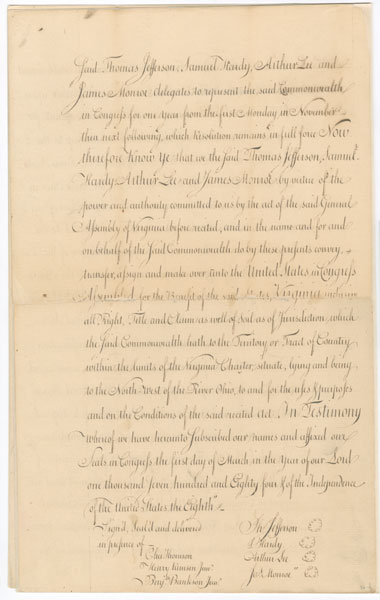 said Thomas Jefferson, Samuel Hardy, Arthur Lee and
James Monroe delegates to represent the said Commonwealth
in Congress for one year from the first Monday in November
then next following, which Resolution remains in full force Now
therefore Know Ye that we the said Thomas Jefferson, Samuel
Hardy, Arthur Lee and James Monroe by virtue of the
power and authority committed to us by the act of the said General
Assembly of Virginia before recited, and in the name and for and
on behalf of the said Commonwealth do by these presents convey,
transfer, assign and make over unto the United States in Congress
Assembled for the Benefit of the said Virginia inclusive
all Right, Title and Claim as well of Soil as of Jurisdiction which
the said Commonwealth hath to the Territory or Tract of Country
within the limits of the Virginia Charter, situate, lying and being
to the North-West of the River Ohio, to and for the uses & purposes
and on the Conditions of the said recited act. In Testimony
Whereof we have hereunto Subscribed our names and affixed our
Seals in Congress the first day of March in the Year of our Lord
one thousand seven hundred and Eighty four & of the Independence
of the United States the Eighth
Sign'd, Seal'd and delivered
in presence of
Cha Thomson
Henry Remsen Junr
Benjn Bankson Junr
Th Jefferson
S Hardy
Arthur Lee
Jas Monroe